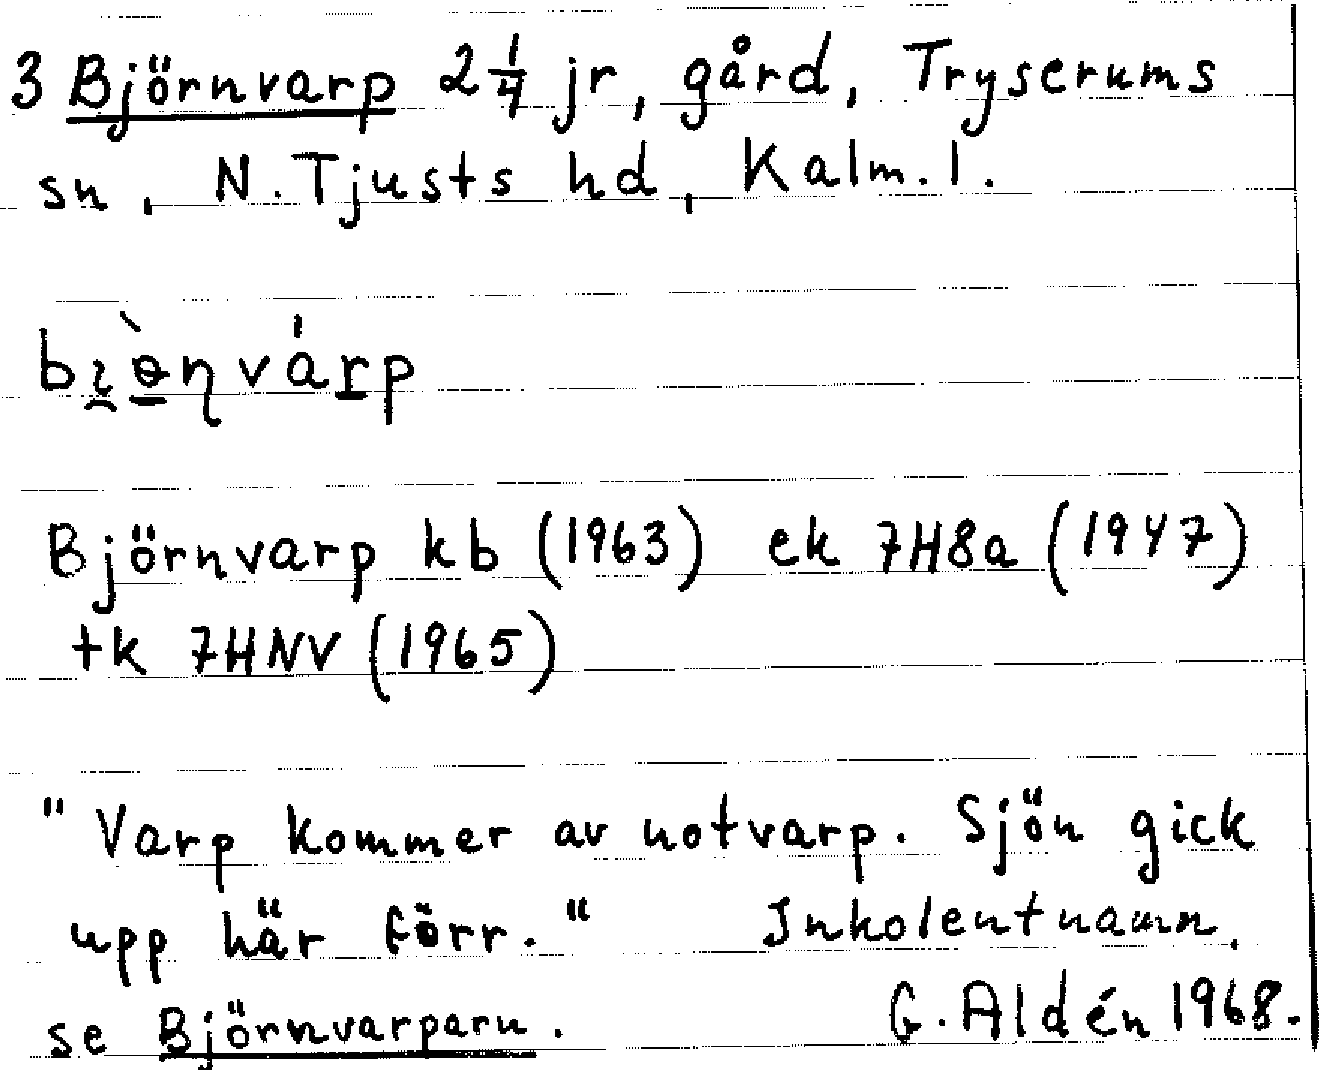 3 Björnvarp 2 1/4 jr, gård, Tryserums
sn, N. Tjusts hd, Kalm. l.
Björnvarp kb (1963) ek 7H8a (1947)
tk 7HNV (1965)
"Varp kommer av notvarp. Sjön gick
upp här förr." Inkolentnamn.
se Björnvarparn. G. Aldén 1968.